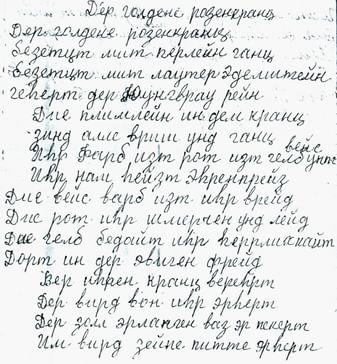 Дер голдене розенкранц
Дер голдене розенкранц
Безетцт мит перлейн ганц
Безетцт мит лаутер эделштейн
Гегерт дер Юунгврау рейн
Дие плимлейн ин дем кранц
Зинд алис вриш унд ганц
Ихр Фарб изт рот изт гелб унт вейс
Ихр нам хейзт Эхренпрейз
Дие вейс варб изт ихр врейд
Дис рот ихр шмерчен унд лейд
Дие гелб бедайт ихр херрлихкайт
Дорт ин дер эвиген фрейд
Вер ихрен кранц верехрт
Дер вирд вон ихр эрхерт
Дер золл эрланген ваз эр пехерт
Им вирд зейне питте эрхерт